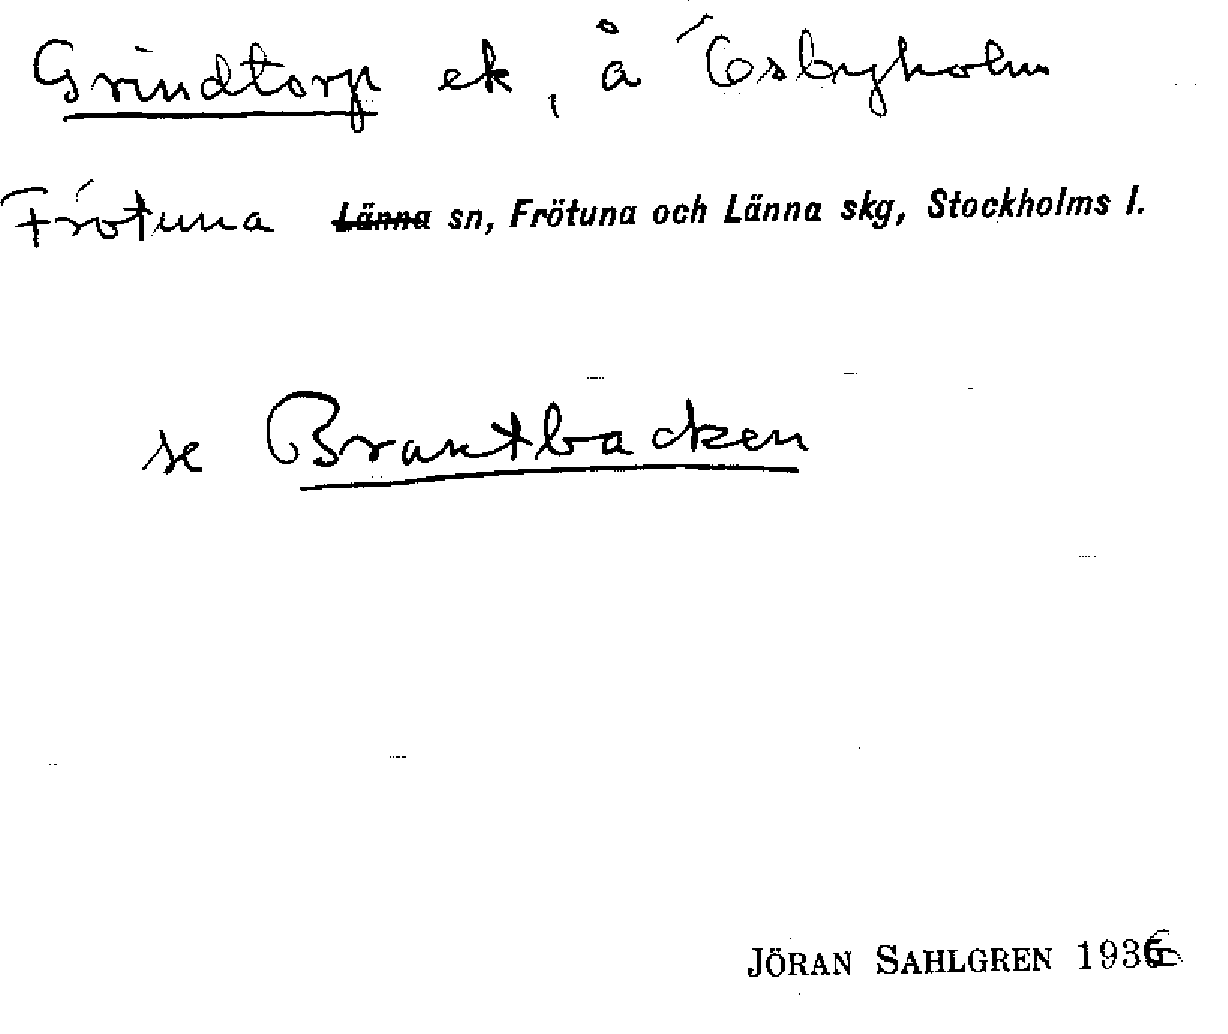 Grindtorp ek, å Ösbyholm
Frötuna Länna sn, Frötuna och Länna skg, Stockholms l.
se Brantbacken
JÖRAN SAHLGREN 1936